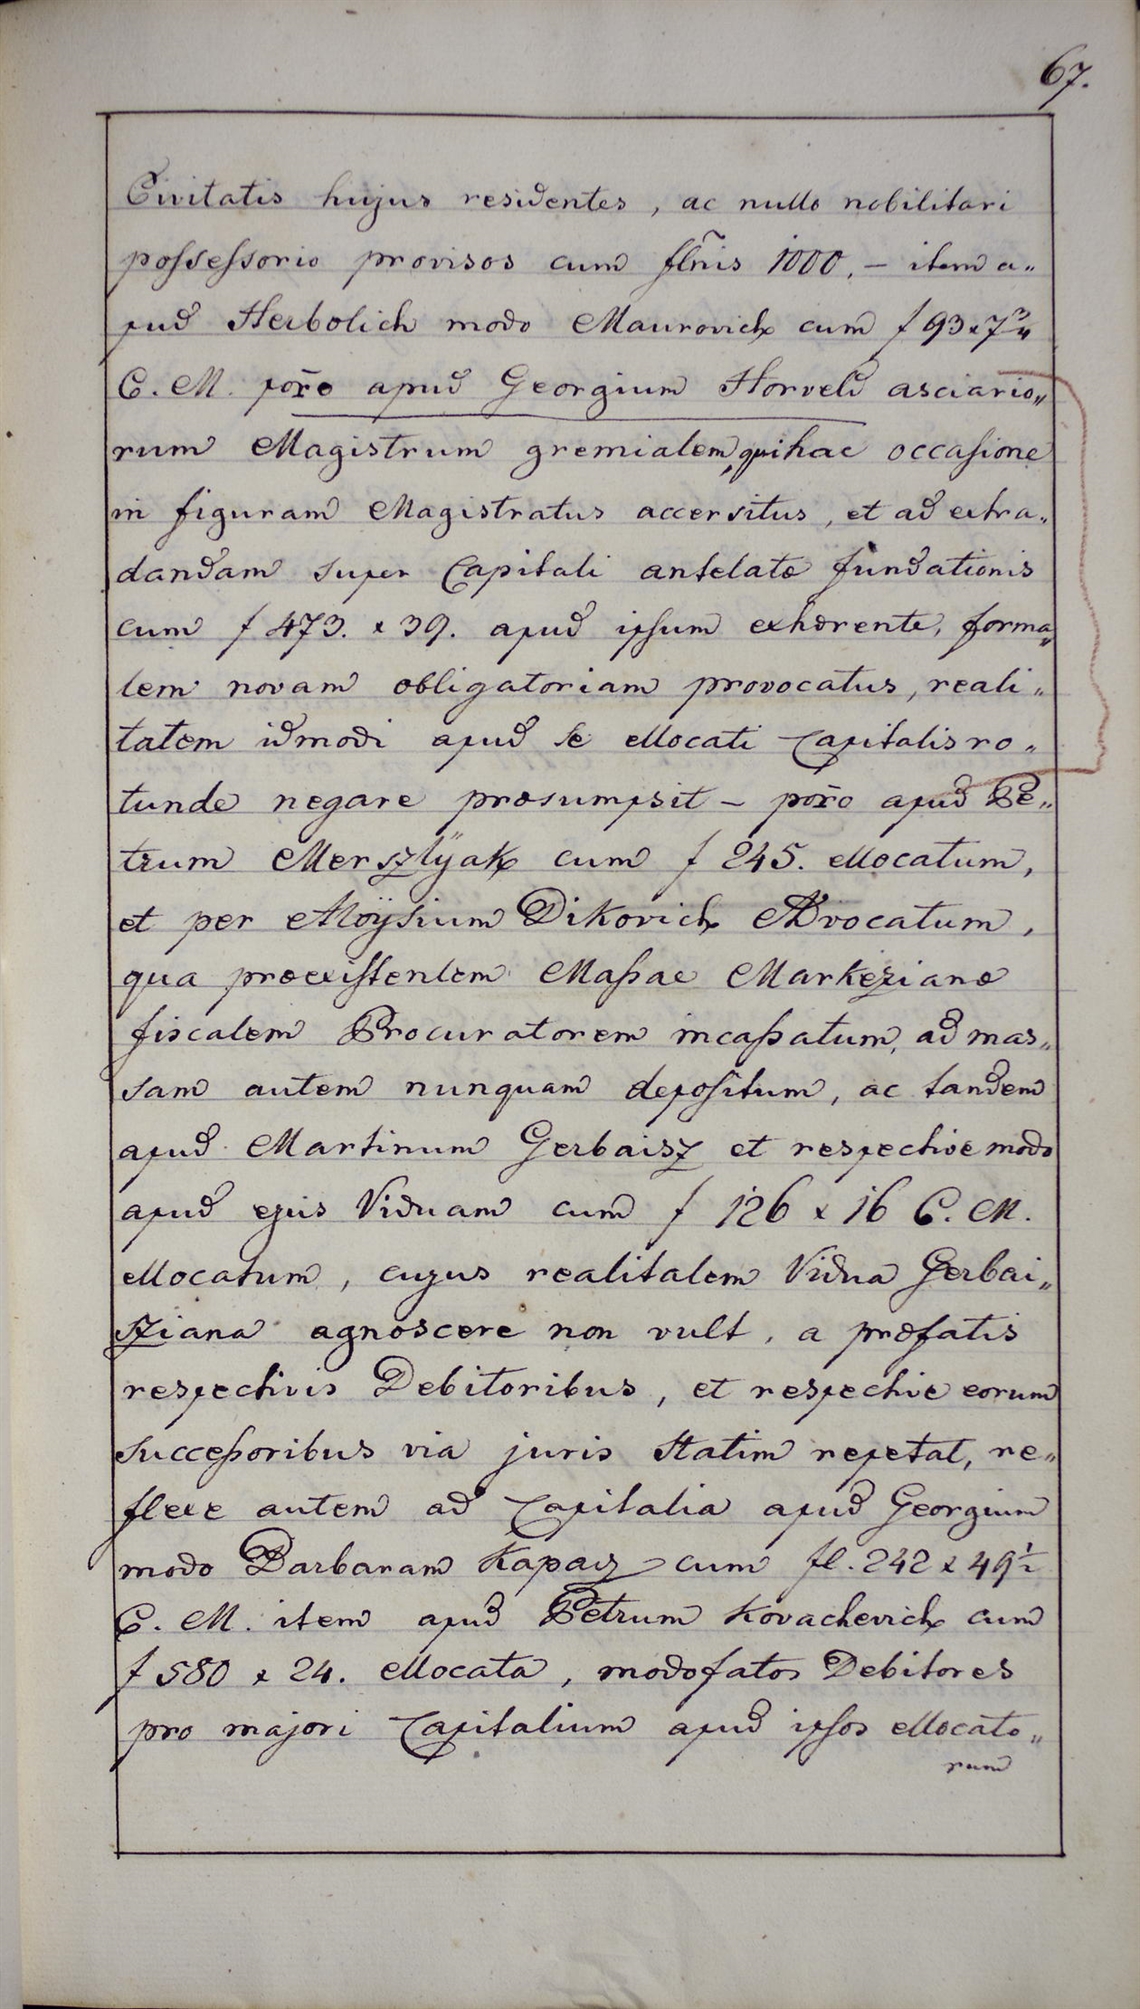 67.
Civitatis hujus residentes, ac nullo nobilitari
possessorio provisos cum flnis 1000, – item a„
pud Herbolich modo Maurovich cum f 93 x 7 3/4
C. M. porro apud Georgium Horveld asciario„
rum Magistrum gremialem, qui hac occasione
in figuram Magistratus accersitus, et ad extra„
dandam super Capitali antelatæ fundationis
cum f 473. x 39. apud ipsum exhærente, forma„
lem novam obligatoriam provocatus, reali„
tatem idmodi apud se ellocati Capitalis ro„
tunde negare præsumpsit – porro apud Pe„
trum Merszlÿak cum f 245. ellocatum,
et per Aloÿsium Dikovich Advocatum,
qua præexistentem Massae Markezianæ
fiscalem Procuratorem incassatum, ad mas„
sam autem nunquam depositum, ac tandem
apud Martinum Gerbaisz et respective modo
apud ejus Viduam cum f 126 x 16 C. M.
ellocatum, cujus realitatem Vidua Gerbai„
sziana agnoscere non vult, a præfatis
respectivis Debitoribus, et respective eorum
successoribus via juris statim repetat, re„
flexe autem ad Capitalia apud Georgium
modo Barbaram Kapaz cum fl. 242 x 49 1/2
C. M. item apud Petrum Kovachevich cum
f 580 x 24. ellocata, modofatos Debitores
pro majori Capitalium apud ipsos ellocato„
rum